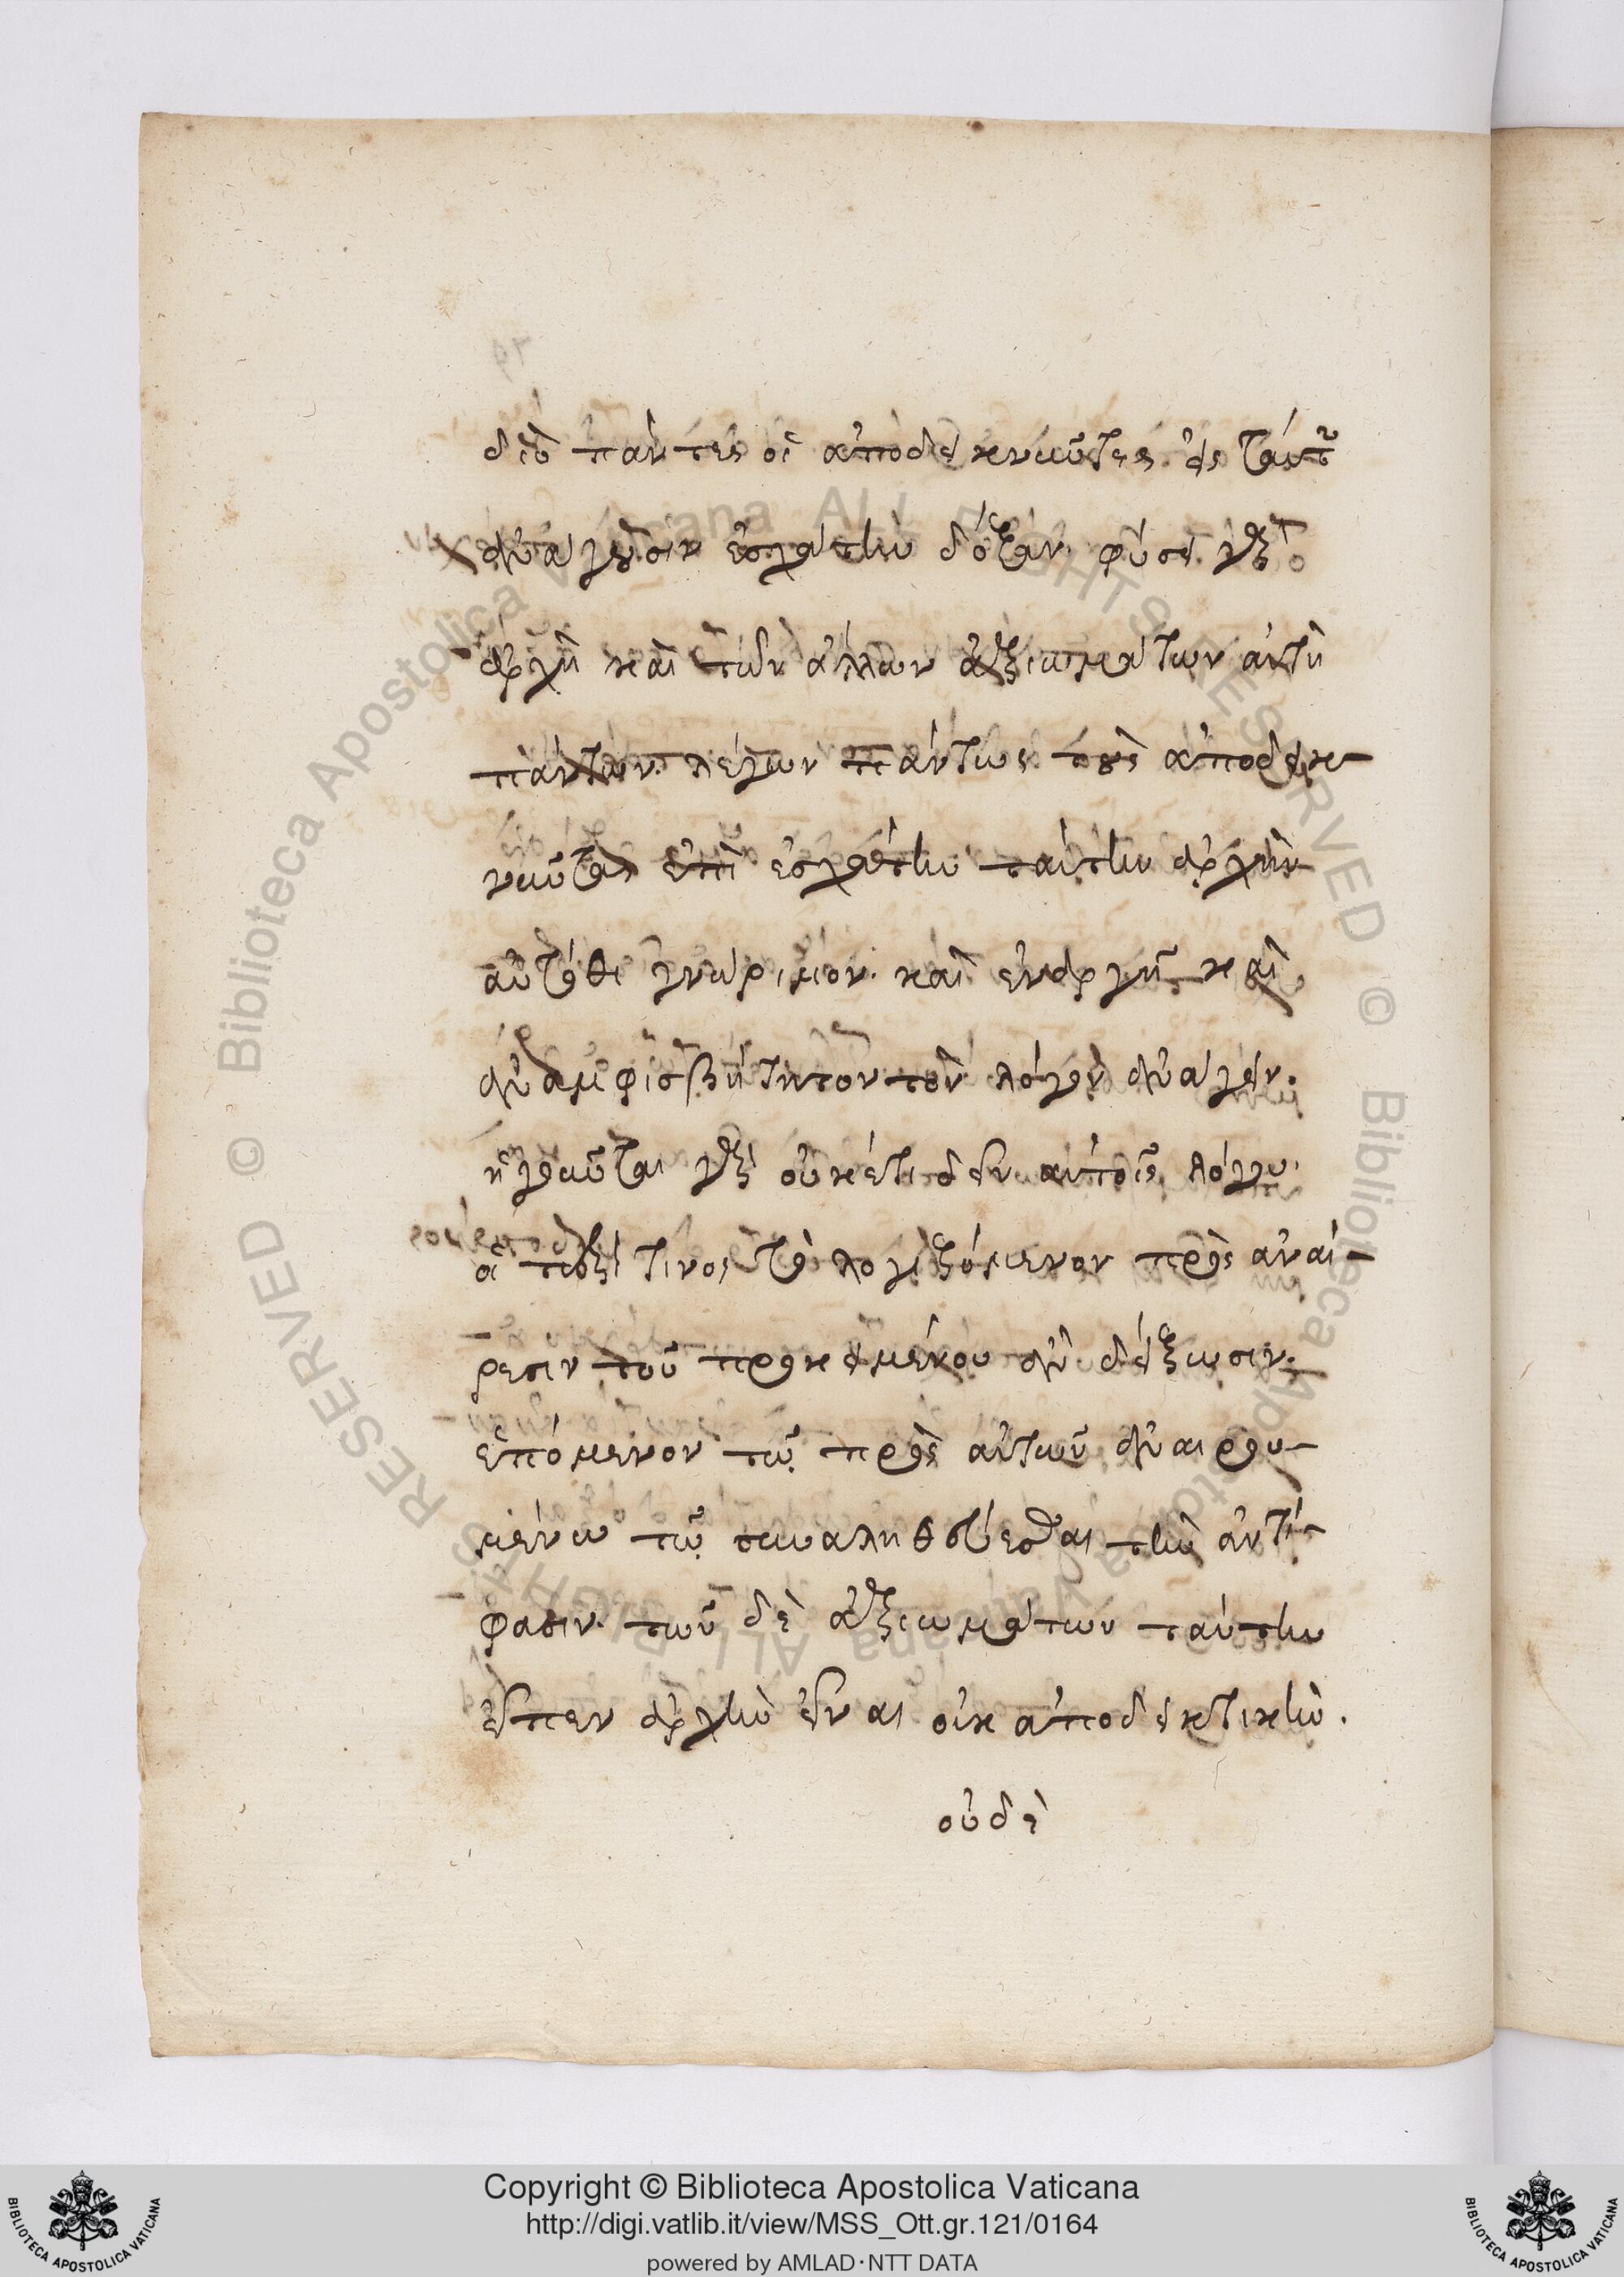 διὸ πάντες οἱ ἀποδεικνύντες εἰς ταύτ
ἀνάγουσιν ἐσχάτην δόξαν. φύσει γὰρ
ἀρχὴ καὶ τῶν ἄλλων ἀξιωμάτων αὕτη
πάντων. λέγων πάντως τοὺς ἀποδεικ-
νύντας ἐπὶ ἐσχάτην ταύτην ἀρχὴν
αὐτόθι γνώριμον. καὶ ἐναργῆ καὶ
ἀναμφισβήτητον τὸν λόγον ἀνάγειν.
ἡγοῦνται γὰρ οὐκέτι δεῖν αὐτοῖς λόγου.
εἰ περί τινος τὸ λογιζόμενον πρὸς ἀναί-
ρεσιν τοῦ προκειμένου ἂν δείξωσιν.
ἑπόμενον τῷ πρὸς αὐτῶν ἀναιρου-
μένῳ τῷ συναληθεύεσθαι τὴν ἀντί-
φασιν. τῶν δὲ ἀξιωμάτων ταύτην
εἶπεν ἀρχὴν εἶναι οὐκ ἀποδεικτικὴν.
οὐδὲ
Copyright © Biblioteca Apostolica Vaticana
http://digi.vatlib.it/view/MSS_Ott.gr.121/0164
powered by AMLAD·NTT DATA
BIBLIOTECA APOSTOLICA VATICANA
BIBLIOTECA APOSTOLICA VATICANA
© Biblioteca Apostolica Vaticana ALL RIGHTS RESERVED
© Biblioteca Apostolica Vaticana ALL RIGHTS RESERVED